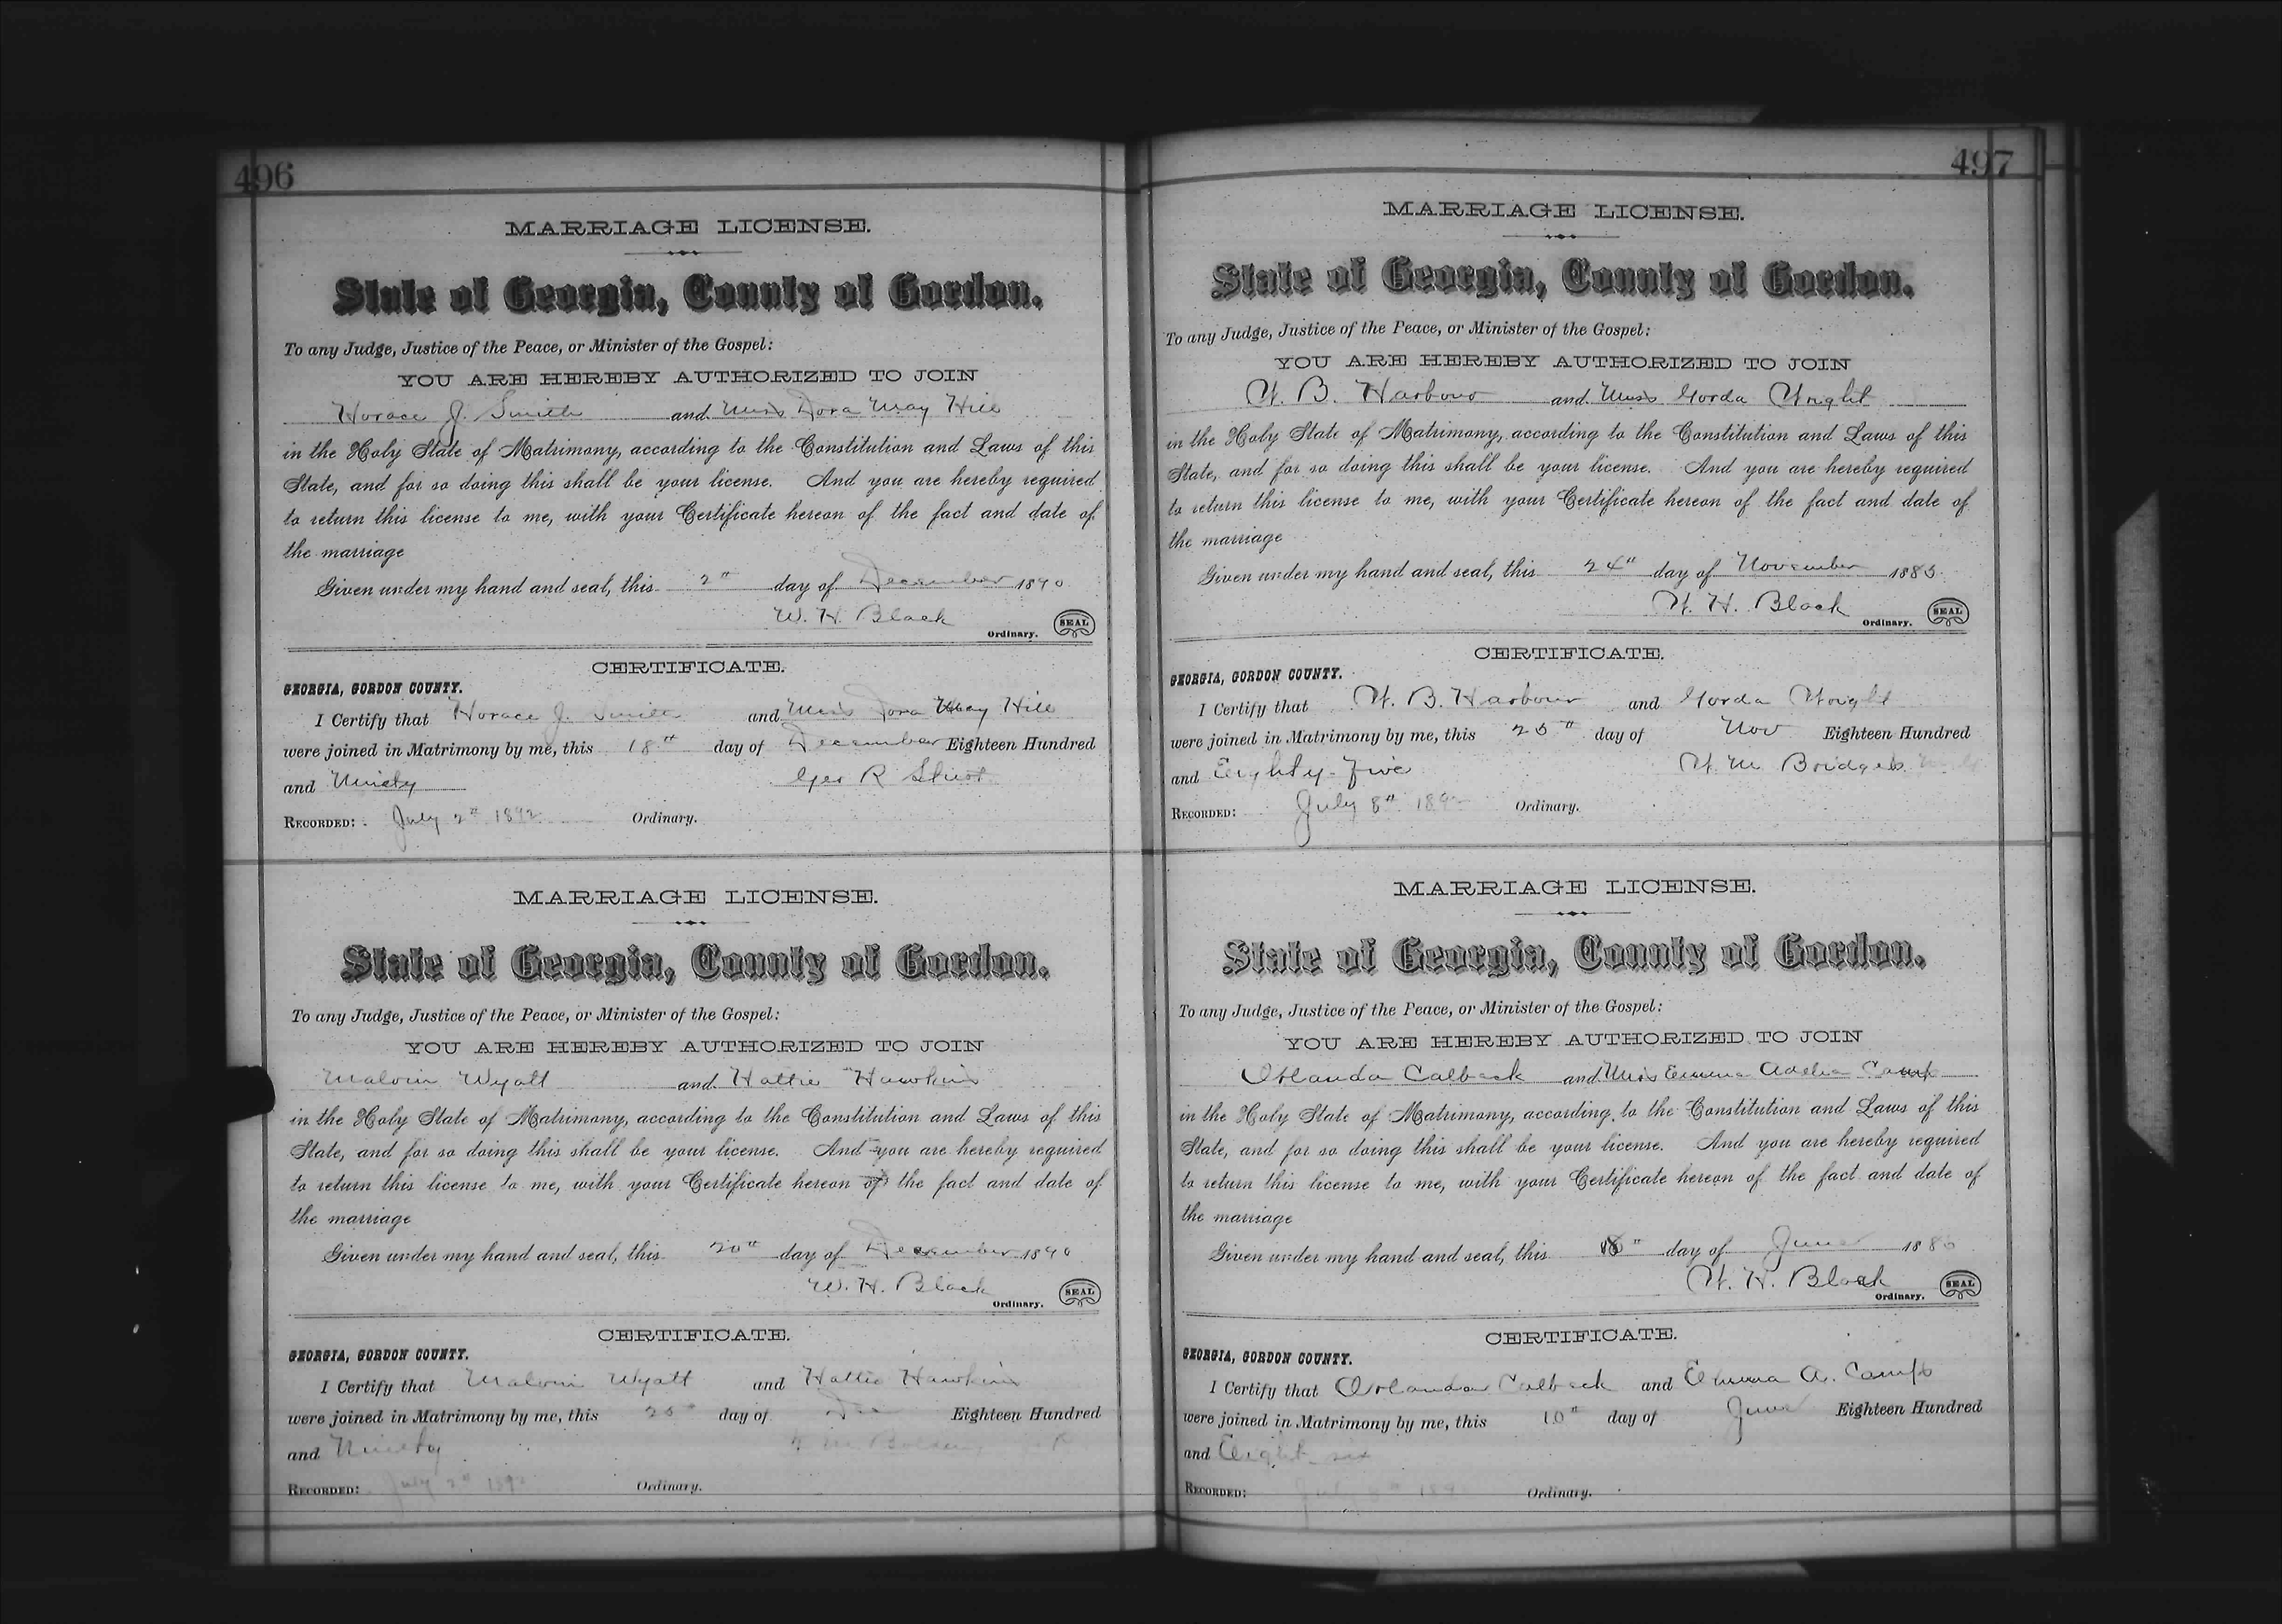 496
MARRIAGE LICENSE.
State of Georgia, County of Gordon.
To any Judge, Justice of the Peace, or Minister of the Gospel:
YOU ARE HEREBY AUTHORIZED TO JOIN
Horace J. Smith and Miss Dora May Hill
in the Holy State of Matrimony, according to the Constitution and Laws of this
State, and for so doing this shall be your license. And you are hereby required
to return this license to me, with your Certificate hereon of the fact and date of
the marriage
Given under my hand and seal, this 2" day of December 1890
W. H. Black
Ordinary. SEAL
CERTIFICATE.
GEORGIA, GORDON COUNTY.
I Certify that Horace J. Smith and Miss Dora May Hill
were joined in Matrimony by me, this 18th day of December Eighteen Hundred
and Ninety Geo R
RECORDED: July 2" 1892 Ordinary.
MARRIAGE LICENSE.
State of Georgia, County of Gordon.
To any Judge, Justice of the Peace, or Minister of the Gospel:
YOU ARE HEREBY AUTHORIZED TO JOIN
Malvin Wyatt and Hattie Hawkins
in the Holy State of Matrimony, according to the Constitution and Laws of this
State, and for so doing this shall be your license. And you are hereby required
to return this license to me, with your Certificate hereon of the fact and date of
the marriage
Given under my hand and seal, this 20" day of December 1890
W. H. Black
Ordinary. SEAL
CERTIFICATE.
GEORGIA, GORDON COUNTY.
I Certify that Malvin Wyatt and Hattie Hawkins
were joined in Matrimony by me, this day of Dec Eighteen Hundred
and Ninety
RECORDED: July 2" 1892 Ordinary.
497
MARRIAGE LICENSE.
State of Georgia, County of Gordon.
To any Judge, Justice of the Peace, or Minister of the Gospel:
YOU ARE HEREBY AUTHORIZED TO JOIN
W. B. Harbour and Miss Gorda Wright
in the Holy State of Matrimony, according to the Constitution and Laws of this
State, and for so doing this shall be your license. And you are hereby required
to return this license to me, with your Certificate hereon of the fact and date of
the marriage
Given under my hand and seal, this 24" day of November 1885
W. H. Black
Ordinary. SEAL
CERTIFICATE.
GEORGIA, GORDON COUNTY.
I Certify that W. B. Harbour and Gorda Wright
were joined in Matrimony by me, this 25" day of Nov Eighteen Hundred
and Eighty-Five W. M Bridges
RECORDED: July 8" 1892 Ordinary.
MARRIAGE LICENSE.
State of Georgia, County of Gordon.
To any Judge, Justice of the Peace, or Minister of the Gospel:
YOU ARE HEREBY AUTHORIZED TO JOIN
Orlando Calbeck and Miss Emma Adelia Camp
in the Holy State of Matrimony, according to the Constitution and Laws of this
State, and for so doing this shall be your license. And you are hereby required
to return this license to me, with your Certificate hereon of the fact and date of
the marriage
Given under my hand and seal, this day of June 1886
W. H. Black
Ordinary. SEAL
CERTIFICATE.
GEORGIA, GORDON COUNTY.
I Certify that Orlando Calbeck and Emma A. Camp
were joined in Matrimony by me, this 10" day of June Eighteen Hundred
and Eight six
RECORDED: July 8" 189 Ordinary.